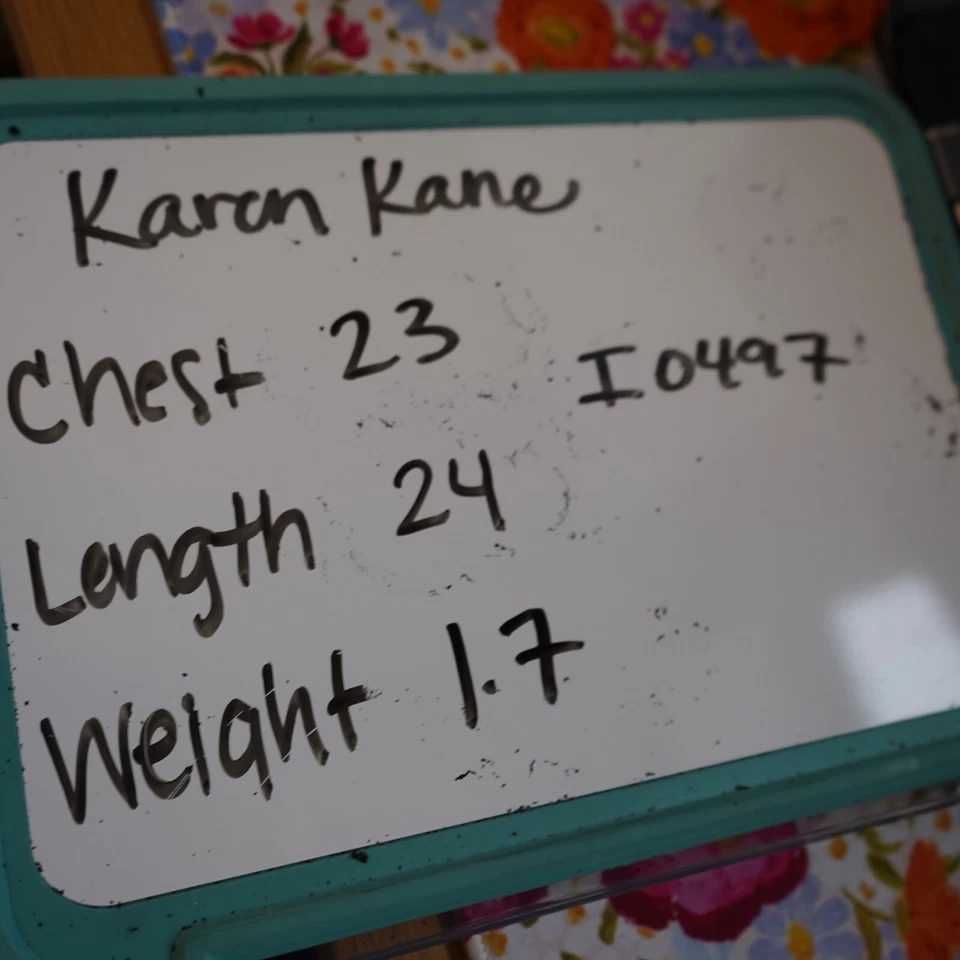 Karen Kane
Chest 23
I0497
Length 24
Weight 1.7